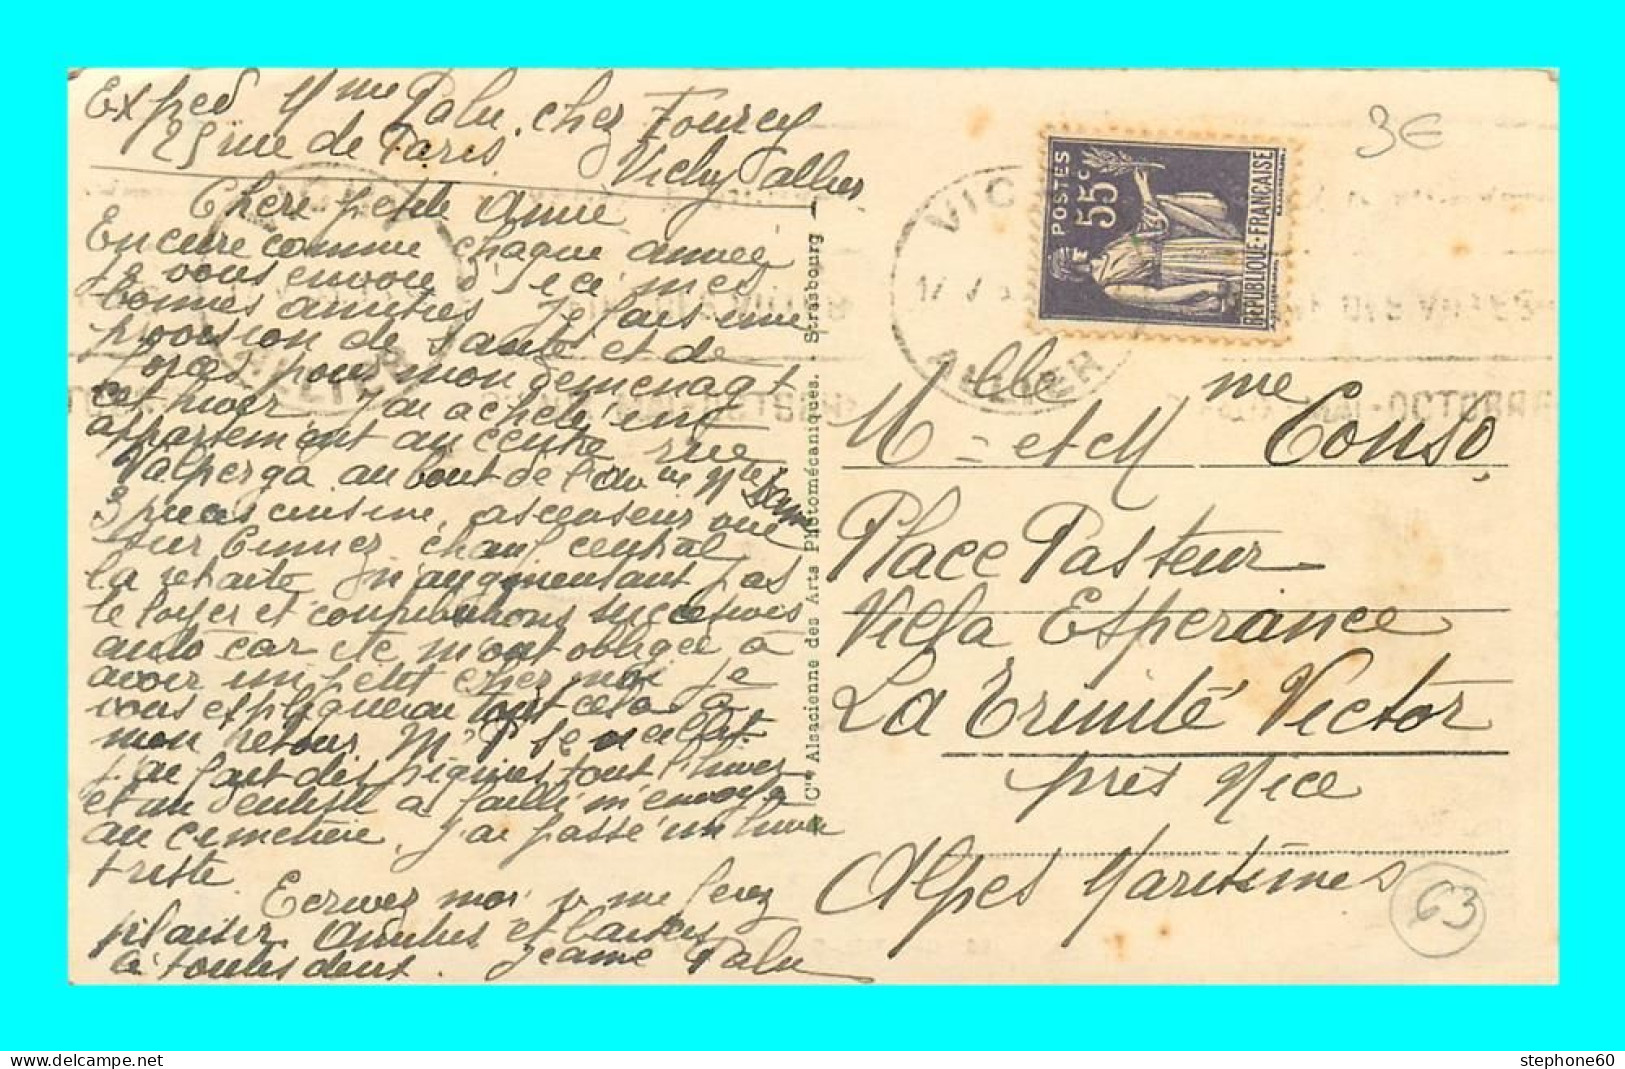 Exped Mme Palu chez Fourcy
25 rue de Paris Vichy Allier
Chère petite Amie
Encore comme chaque année
je vous envoie d'ici mes
bonnes amitiés Je fais une
provision de santé et de
forces pour mon demenagt
cet hiver J'ai acheté
appartement au centre rue
Valperga au bout de l'av
3 pieces cuisine, ascenseur vue
sur Cimiez chauf central
La retraite n'augmentant pas
le loyer et contributions successives
auto car etc m'ont obligée à
avoir un petit chez moi je
vous expliquerai tout cela à
mon retour
et un dentiste a failli m'envoyer
au cimetière. J'ai passé un hiver
triste.
Ecrivez moi v me ferez
plaisir Amitiés et
à toutes deux. Jeanne Palu
Cie Alsacienne des Arts Photomécaniques. - Strasbourg
POSTES
55c
REPUBLIQUE-FRANÇAISE
VIC
ALLIER
MAI-OCTOBRE
3€
Mlle et Mme Conso
Place Pasteur
Villa Esperance
La Trinité Victor
près Nice
Alpes Maritimes
63
www.delcampe.net
stephone60